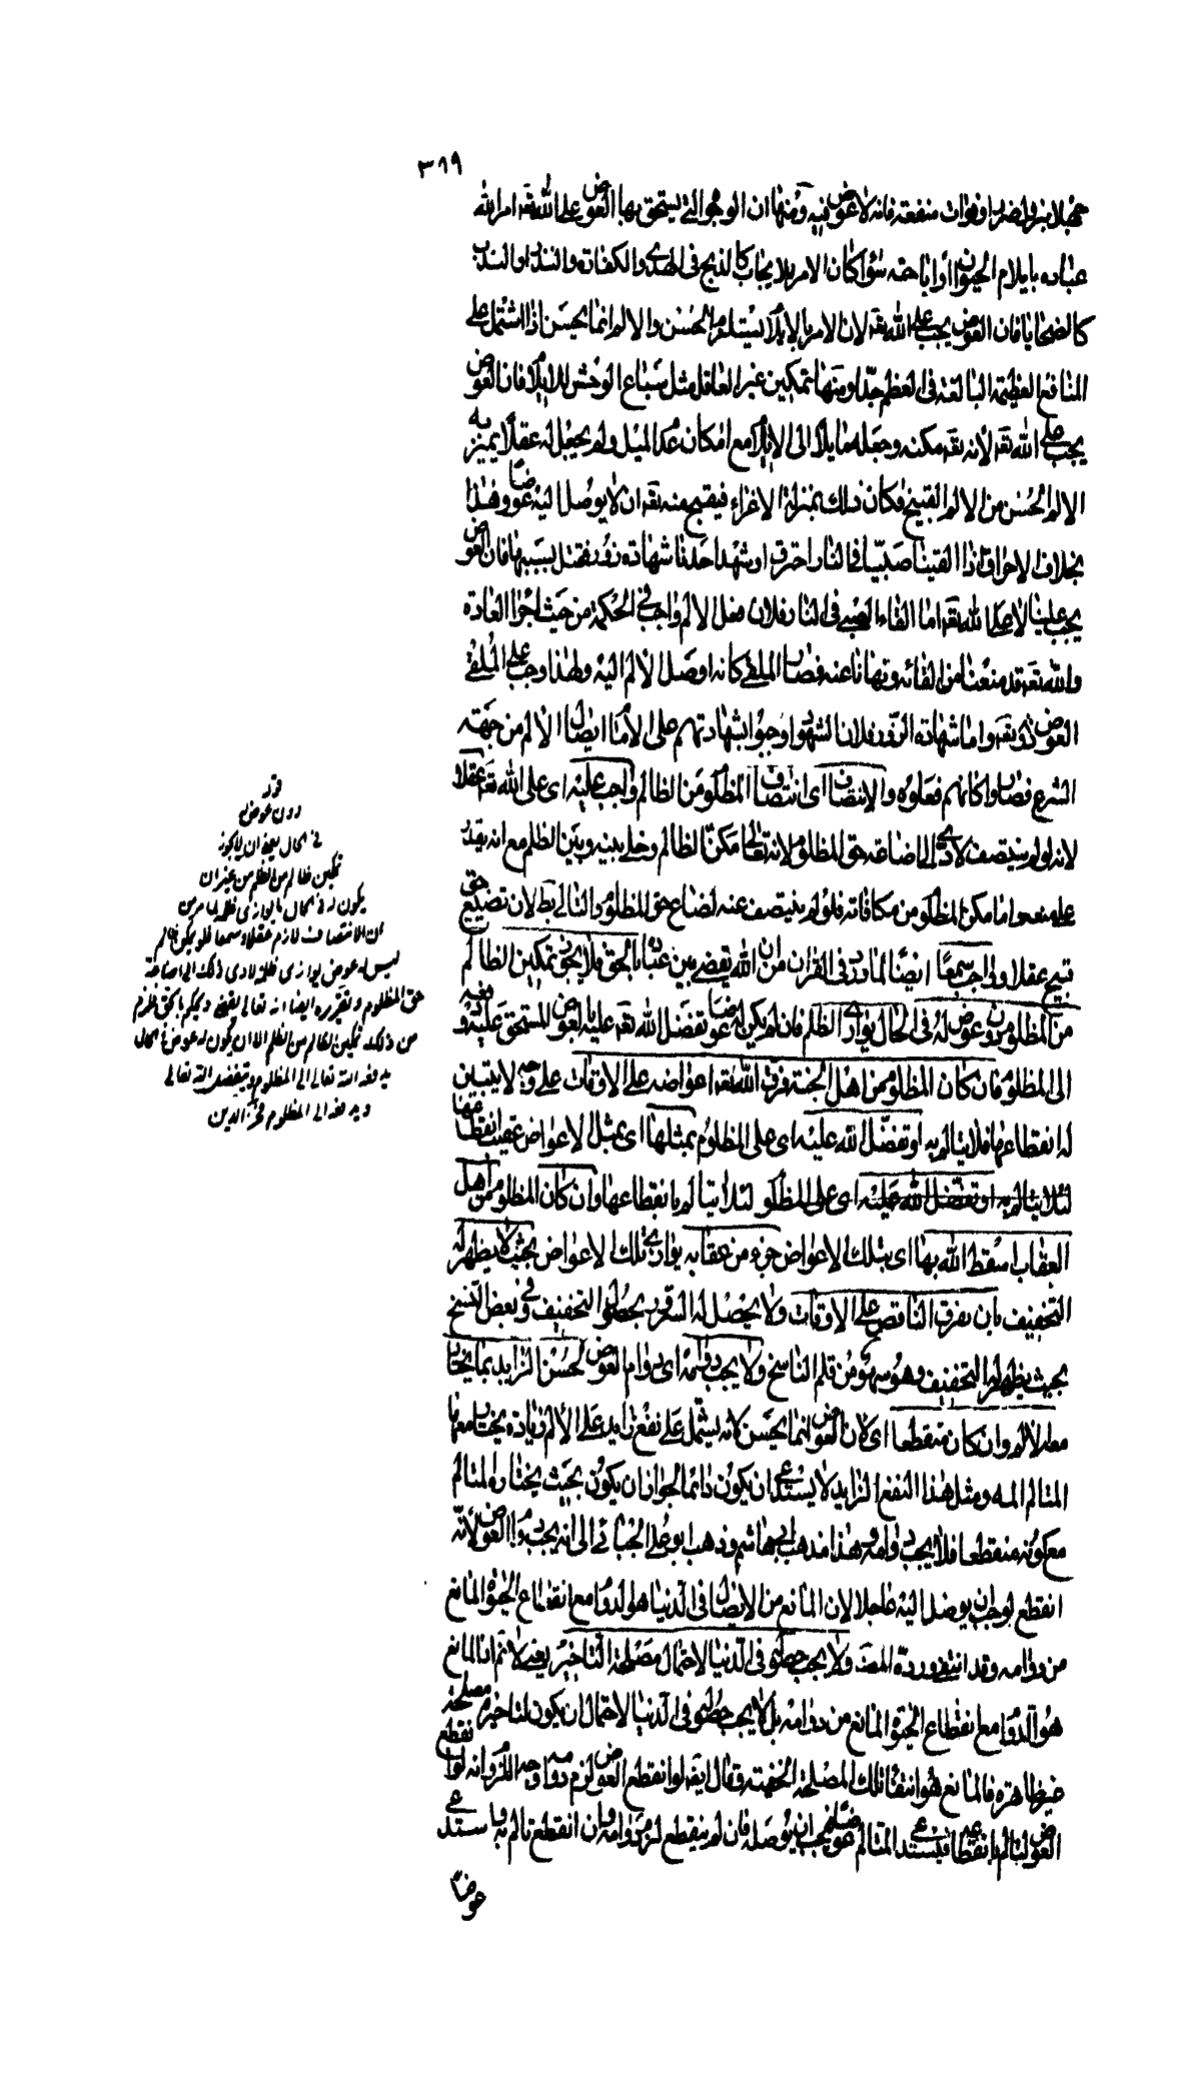 ٣٦٩
منفعته فانه لا عوض فيه ومنها ان الوجوه التي يستحق بها العوض على الله تعـ امر الله
عباده بايلام الحيوان او اباحته سواء كان الامر للايجاب كالذبح فى الهدى والكفارة والنذر او الندب
كالضحايا فان العوض يجب على الله تعـ لان الامر بالايلام يستلزم الحسن والالم انما يحسن اذا اشتمل على
المنافع العظيمة البالغة فى العظم جدا ومنها تمكين غير العاقل مثل سباع الوحش للايلام فان العوض
يجب على الله تعـ لأنه تعـ مكنه وجعله مايلا الى الايلام مع امكان عدم الميل ولم يجعل له عقلا يميز به
الالم الحسن من الالم القبيح فكان ذلك بمنزلة الاغراء فيقبح منه تعـ ان لا يوصل اليه عوضا وهذا
بخلاف الاحراق اذا القينا صبيا فى النار احترق او شهد احدنا شهادة زور فقتل بسببها فان العوض
يجب علينا لا على الله تعـ اما القاء الصبي فى النار فلان فعل الالم واجب فى الحكمة من حيث اجراء العادة
والله تعـ قد منعنا من القائه ونهانا عنه فصار الملقى كانه اوصل الألم اليه ولهذا وجب على الملقى
العوض دونه تعـ واما شهادة الزور فلان الشهود اوجبوا بشهادتهم على الامام ايصال الالم من جهة
الشرع فصاروا كانهم فعلوه والانتصاف اى انتصاف المظلوم من الظالم واجب عليه اى على الله تعـ عقلا
لانه لو لم ينتصف لادى الى اضاعة حق المظلوم لانه تعالى مكن الظالم وخلى بينه وبين الظلم مع انه يقدر
على منعه وما مكن المظلوم من مكافاته فلو لم ينتصف عنه لضاع حق المظلوم والتالى بط لان تضييع حق
قبيح عقلا وواجب سمعا ايضا لما ورد فى القرآن من ان الله يقضى بين عباده بالحق فلا يجوز تمكين الظالم
من المظلوم من دون عوض له فى الحال يوازى الظلم فان لم يكن له عوض تفضل الله تعـ عليه بالعوض المستحق عليه ودفعه
الى المظلوم فان كان المظلوم من اهل الجنة فرق الله تعـ اعواضه على الاوقات على وجه لا يتبين
له انقطاعها فلا يتالم به او تفضل الله عليه اى على المظلوم بمثلها اى بمثل الاعواض عقيب انقطاعها
لئلا يتالم به او تفضل الله عليه اى على المظلوم لئلا يتالم بانقطاعها وان كان المظلوم من اهل
العقاب اسقط الله بها اى بتلك الاعواض جزء من عقابه يوازى تلك الاعواض بحيث لا يظهر له
التخفيف بان يفرق الناقص على الاوقات ولا يحصل له السرور بحصول التخفيف وفى بعض النسخ
بحيث يظهر له التخفيف وهو سهو من قلم الناسخ ولا يجب دوامه اى دوام العوض لحسن الزايد بما يختار
معه الالم وان كان منقطعا اى لان العوض انما يحسن لانه يشتمل على نفع زايد على الالم زيادة يختار معها
المتالم المه ومثل هذا النفع الزايد لا يستدعى ان يكون دائما لجواز ان يكون بحيث يختاره المتالم
مع كونه منقطعا فلا يجب دوامه وهذا مذهب ابى هاشم وذهب ابو على الجبائى الى انه يجب دوام العوض لأنه
انقطع لوجب ان يوصل اليه عاجلا لان المانع من الايصال فى الدنيا هو الدوام مع انقطاع الحيوة المانع
من دوامه وقد انتفى ورده المصـ ولا يجب حصوله فى الدنيا لاحتمال مصلحة التأخير يعنى لا نم ان المانع
هو الدوام مع انقطاع الحيوة المانع من دوامه بل لا يجب حصوله فى الدنيا لاحتمال ان يكون لتاخيره مصلحة
غير ظاهرة فالمانع هو انتفاء تلك المصلحة الخفية وقال ايضا لو انقطع العوض لزم دوامه وجه اللزوم انه لو انقطع
العوض لتالم بانقطاعه فيستدعى المتالم عوضا فيجب ان يوصله فان لم ينقطع لزم دوامه وان انقطع تالم به ويستدعى
عوضا
دون عوض له
فى الحال يعنى ان لا يجوز
تمكين ظالم من الظلم من غير ان
يكون له فى الحال ما يوازى ظلمه لما مر من
ان الانتصاف لازم عقلا وسمعا فلو مكن ظالم
ليس له عوض يوازى ظلمه لادى ذلك الى اضاعة
حق المظلوم وتقريره ايضا انه تعالى يقضى ويحكم بالحق فلزم
من ذلك تمكين الظالم من الظلم الا ان يكون له عوض فى الحال
يدفعه الله تعالى الى المظلوم او يتفضل الله تعالى
ويدفعه الى المظلوم فخر الدين